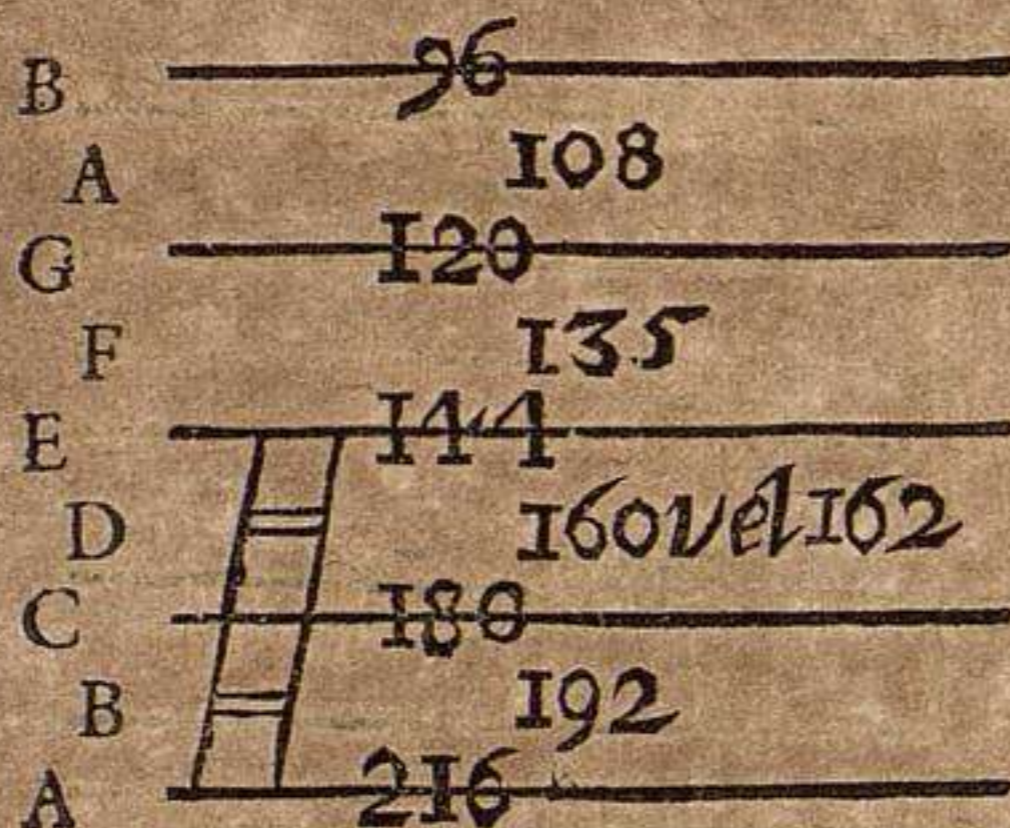 B 96
A 108
G 120
F 135
E 144
D 160 vel 162
C 180
B 192
A 216